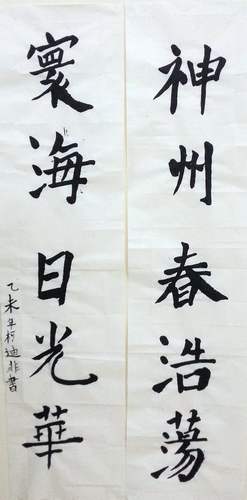 神州春浩蕩
寰海日光華
乙未年柯迪非書